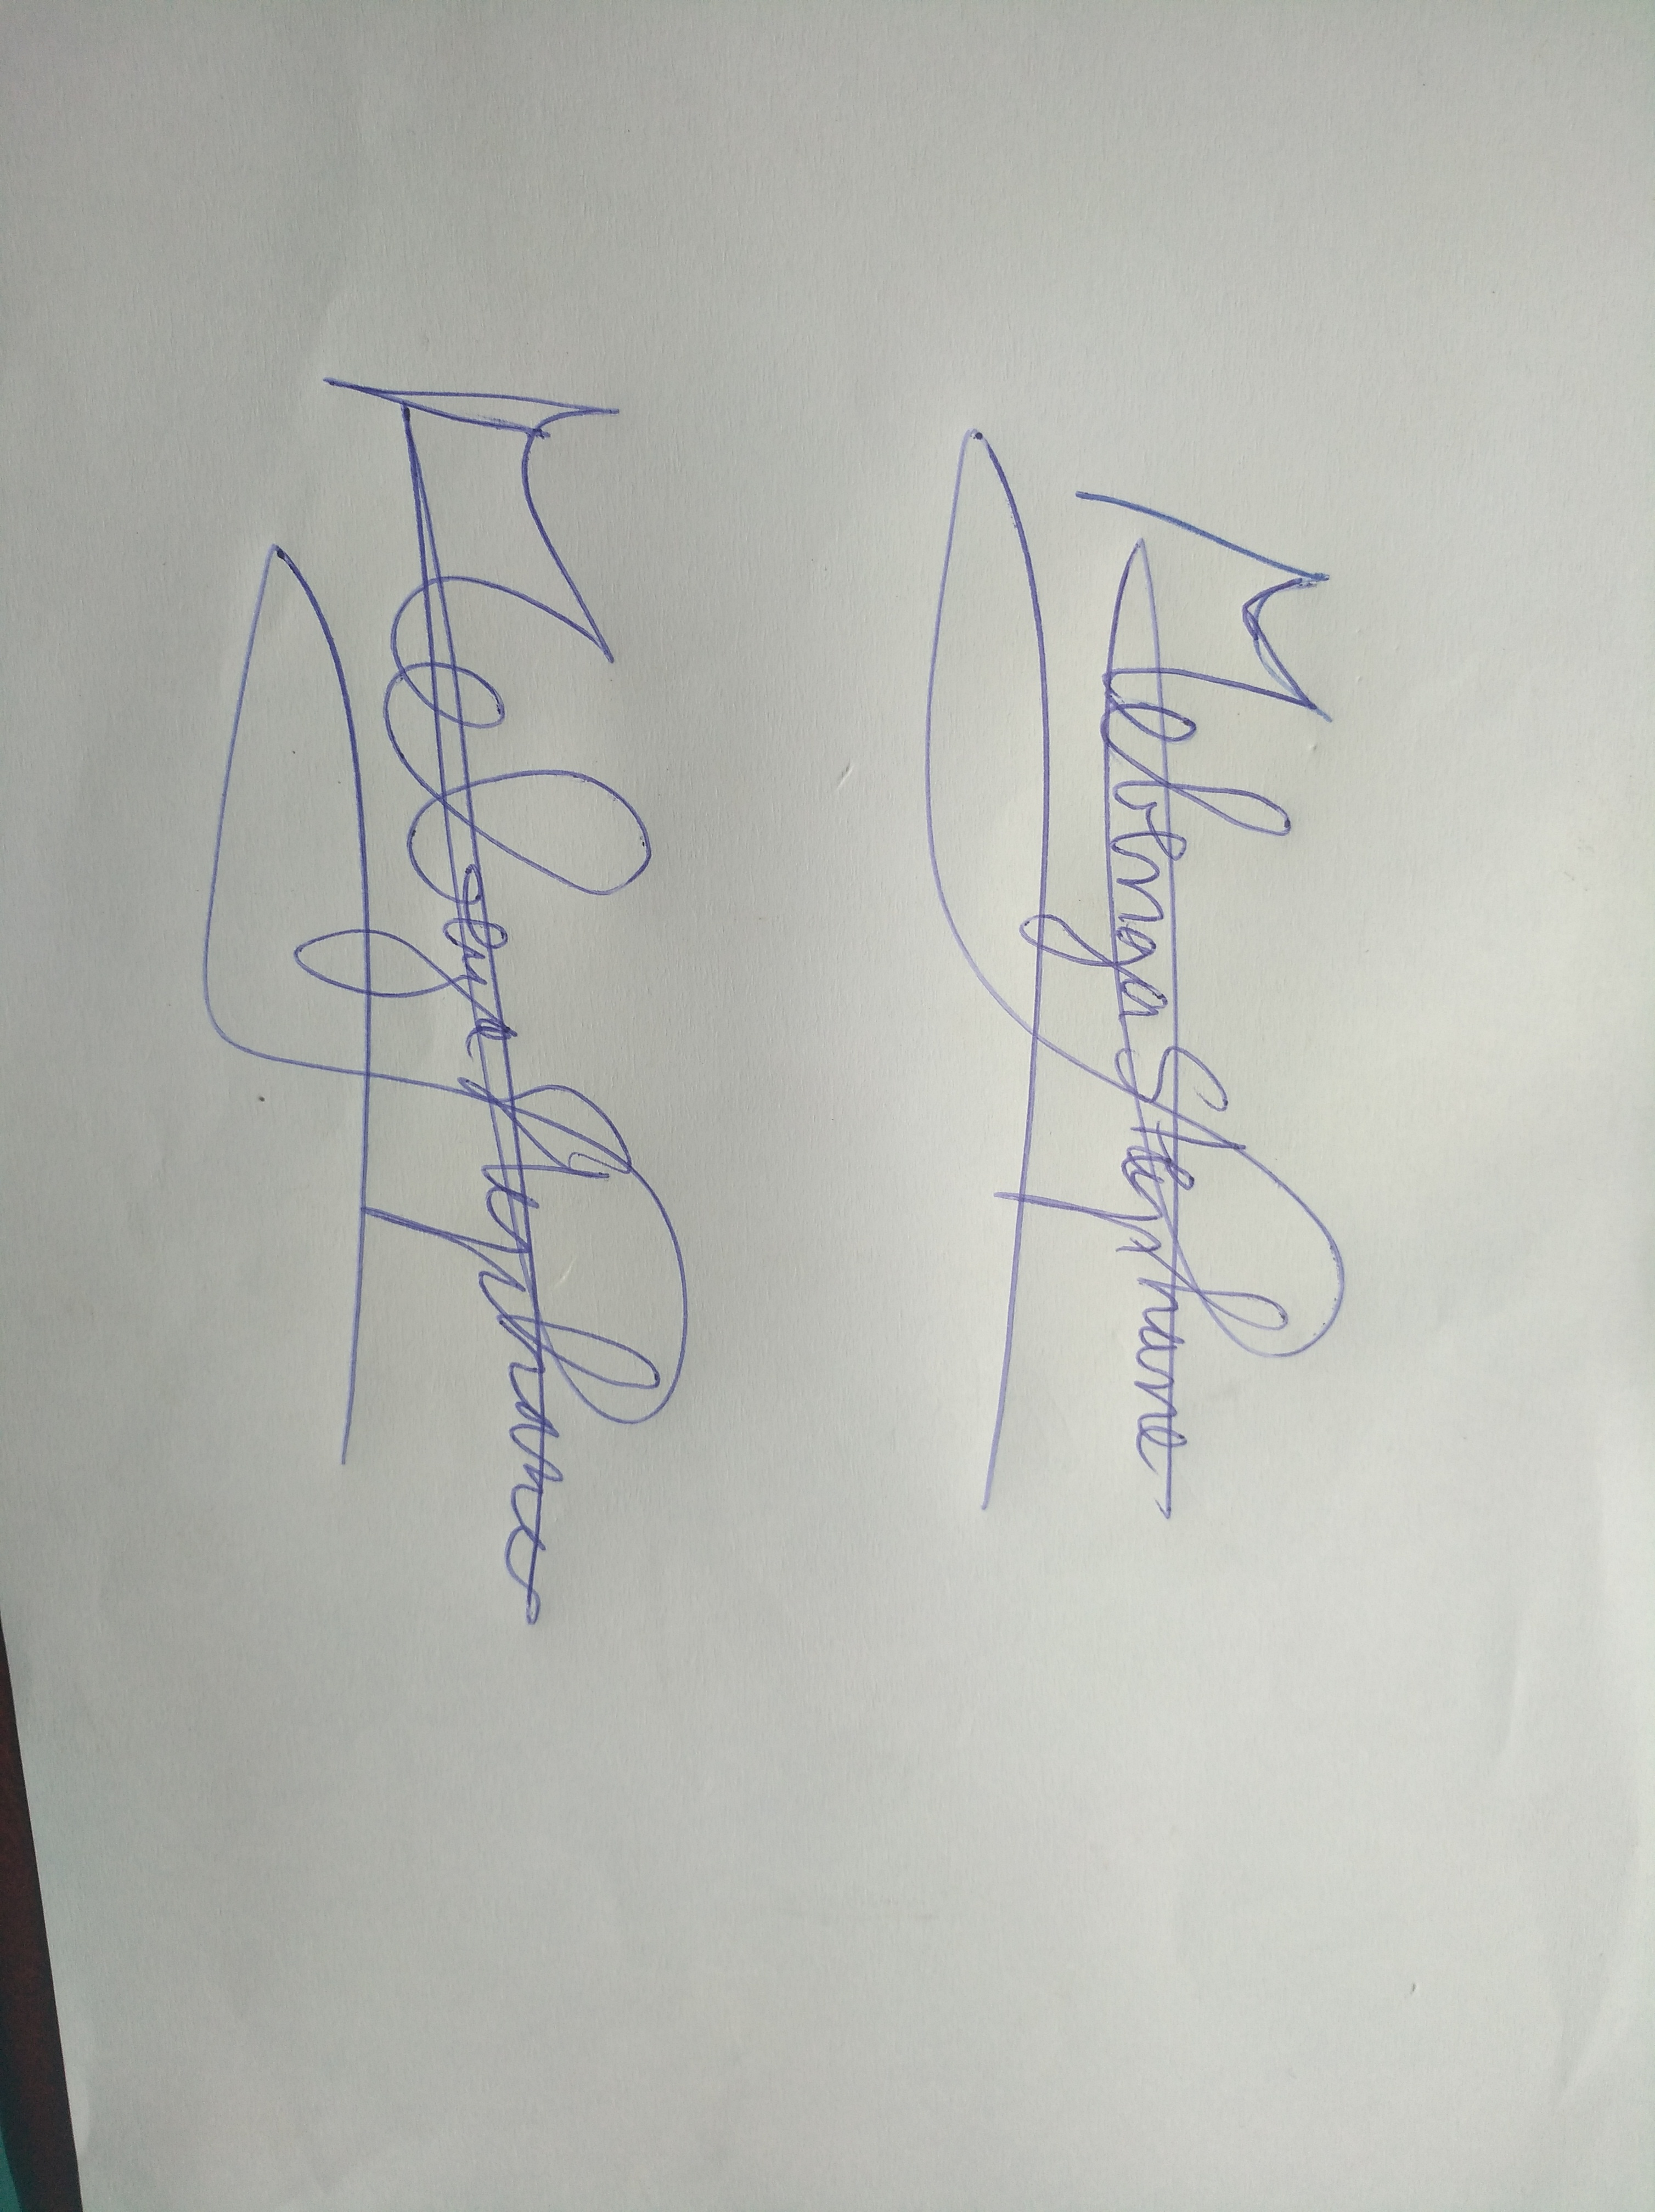 Mebenga Stephane
Mebenga Stephane